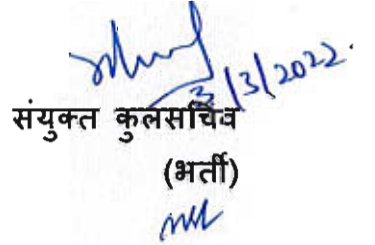 3/3/2022.
संयुक्त कुलसचिव
(भर्ती)